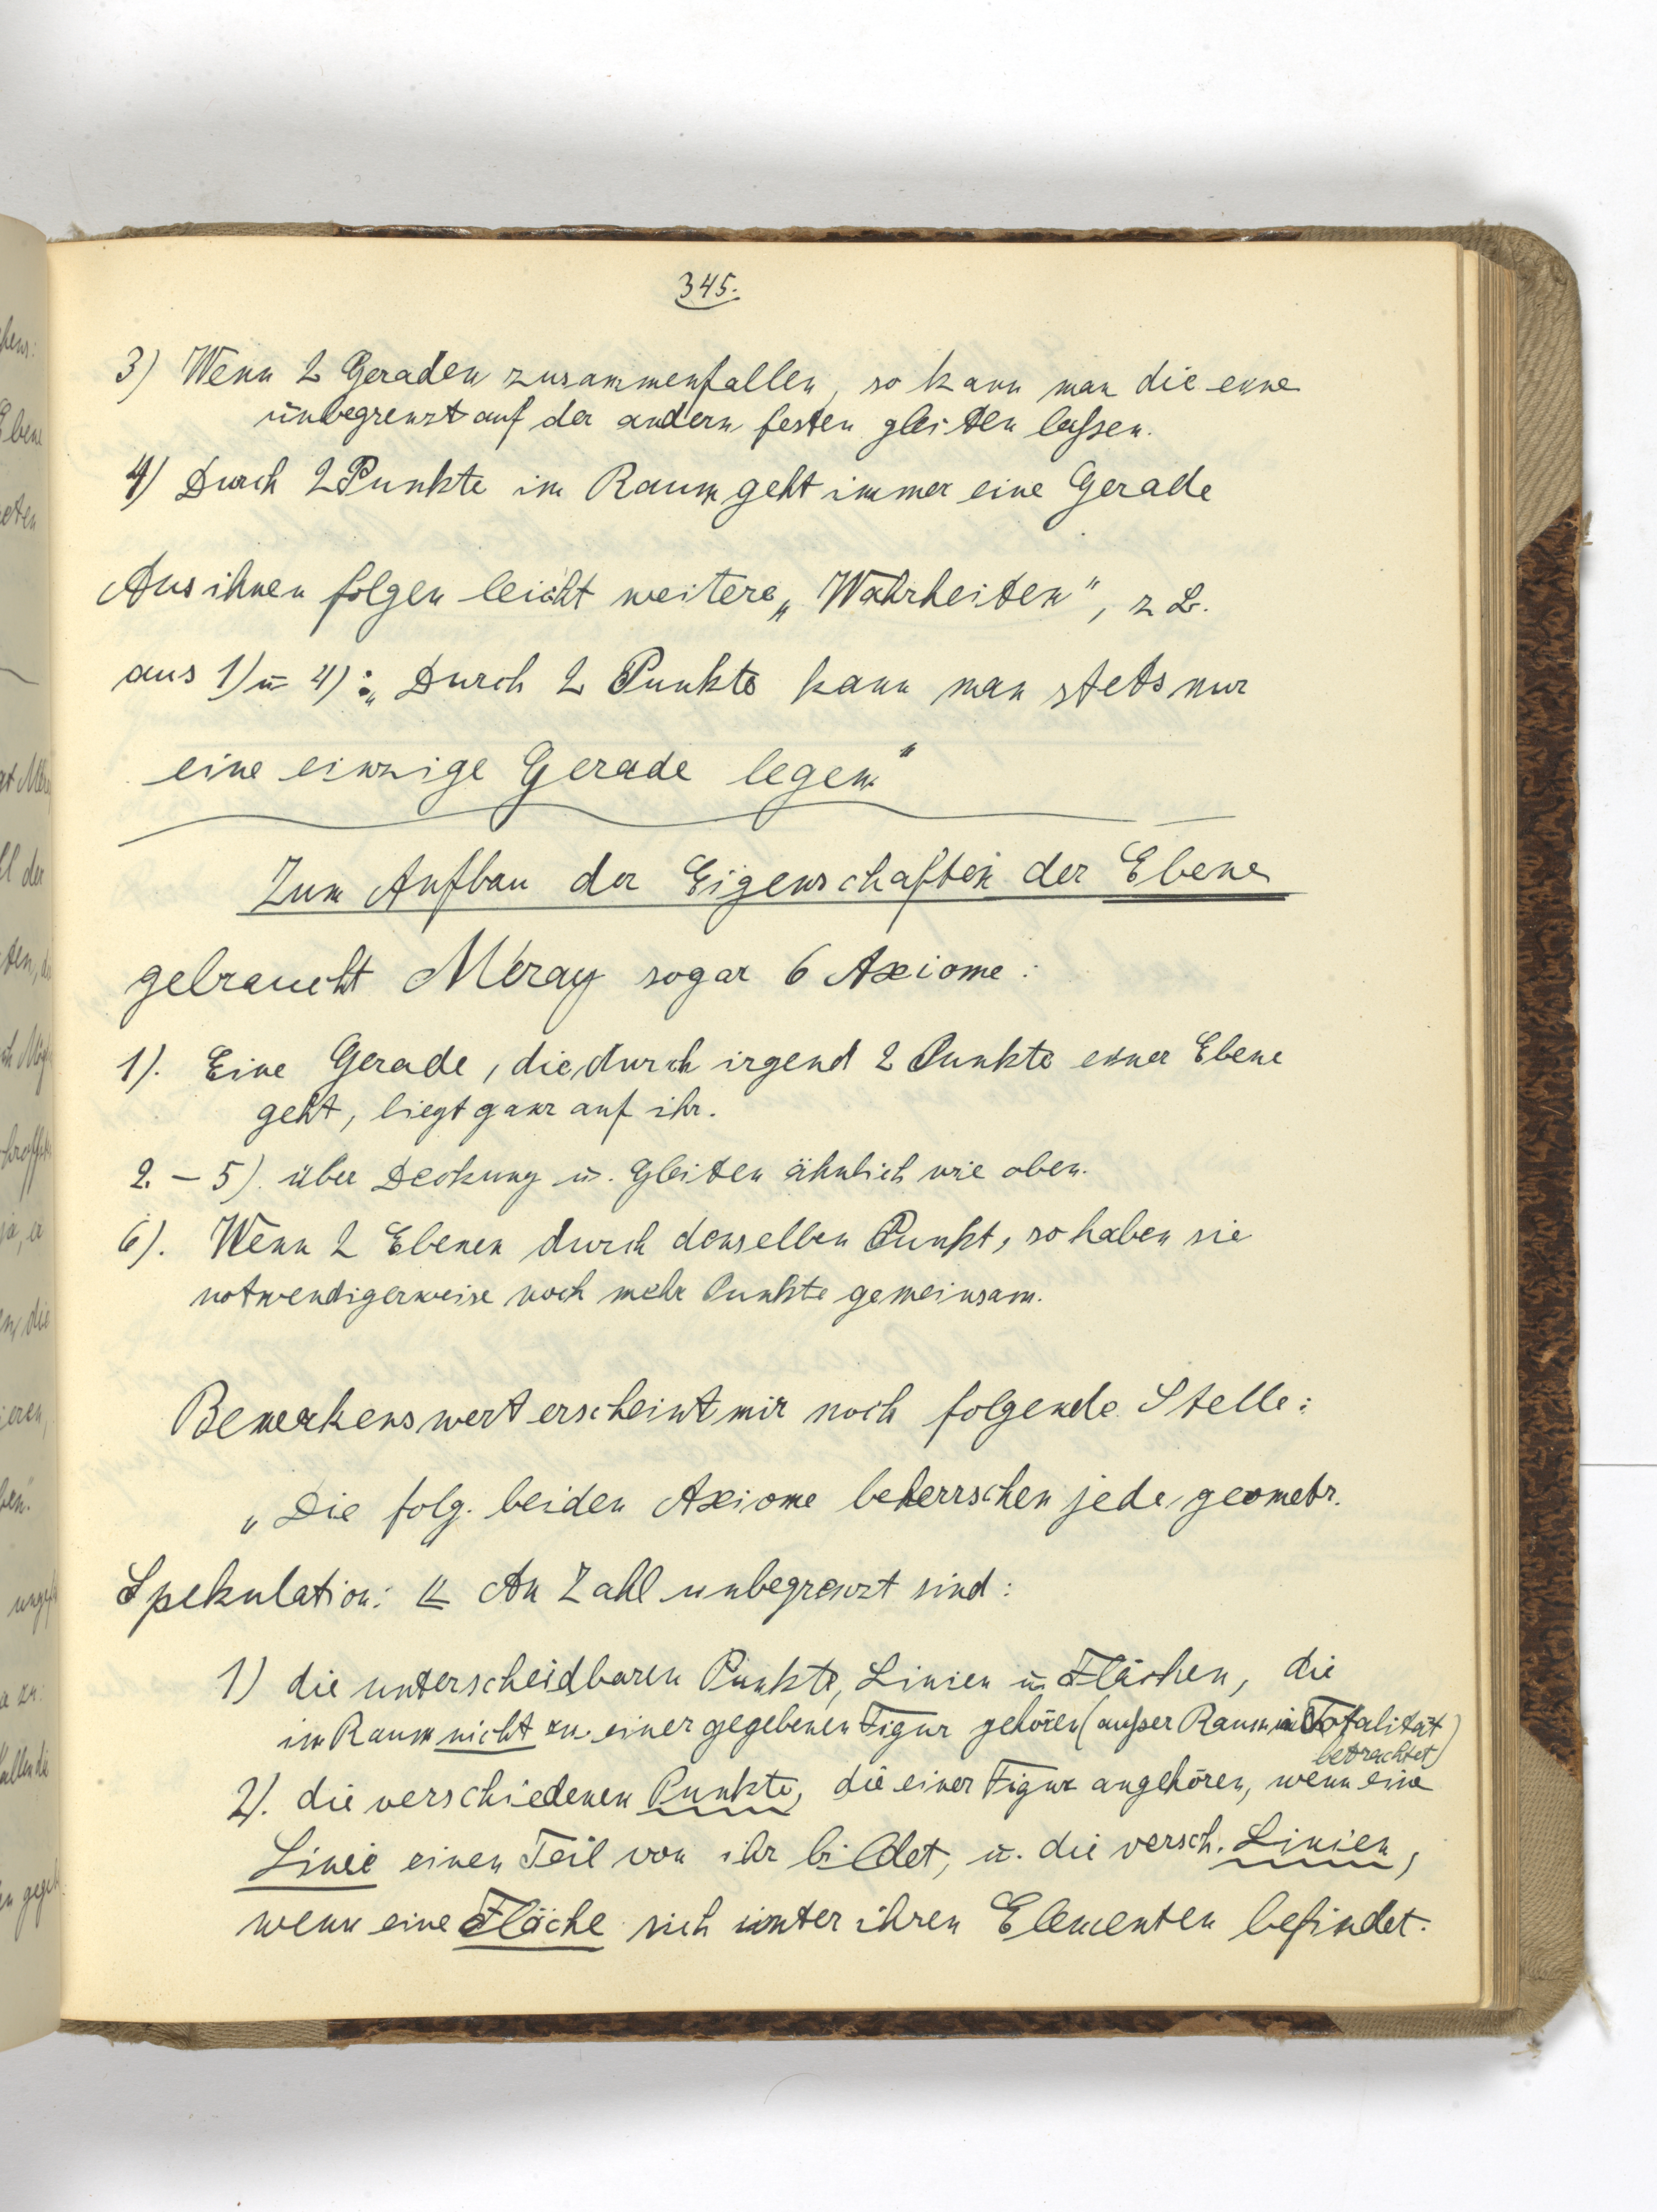 345.
3) Wenn 2 Geraden zusammenfallen, so kann man die eine
unbegrenzt auf der andern festen gleiten lassen.
4) Durch 2 Punkte im Raum geht immer eine Gerade
Aus ihnen folgen leicht weitere „Wahrheiten“, z B.
aus 1) u 4): „Durch 2 Punkte kann man stets nur
eine einzige Gerade legen“
Zum Aufbau der Eigenschaften der Ebene
gebraucht Méray sogar 6 Axiome:
1). Eine Gerade, die durch irgend 2 Punkte einer Ebene
geht, liegt ganz auf ihr.
2. – 5). über Deckung u. Gleiten ähnlich wie oben.
6). Wenn 2 Ebenen durch denselben Punkt, so haben sie
notwendigerweise noch mehr Punkte gemeinsam.
Bemerkenswert erscheint mir noch folgende Stelle:
„Die folg. beiden Axiome beherrschen jede geometr.
Spekulation: An Zahl unbegrenzt sind:
1) die unterscheidbaren Punkte, Linien u Flächen, die
im Raum nicht zu einer gegebenen Figur gehören (außer Raum in Totalität
betrachtet)
2). die verschiedenen Punkte, die einer Figur angehören, wenn eine
Linie einen Teil von ihr bildet, u. die versch. Linien,
wenn eine Fläche sich unter ihren Elementen befindet.